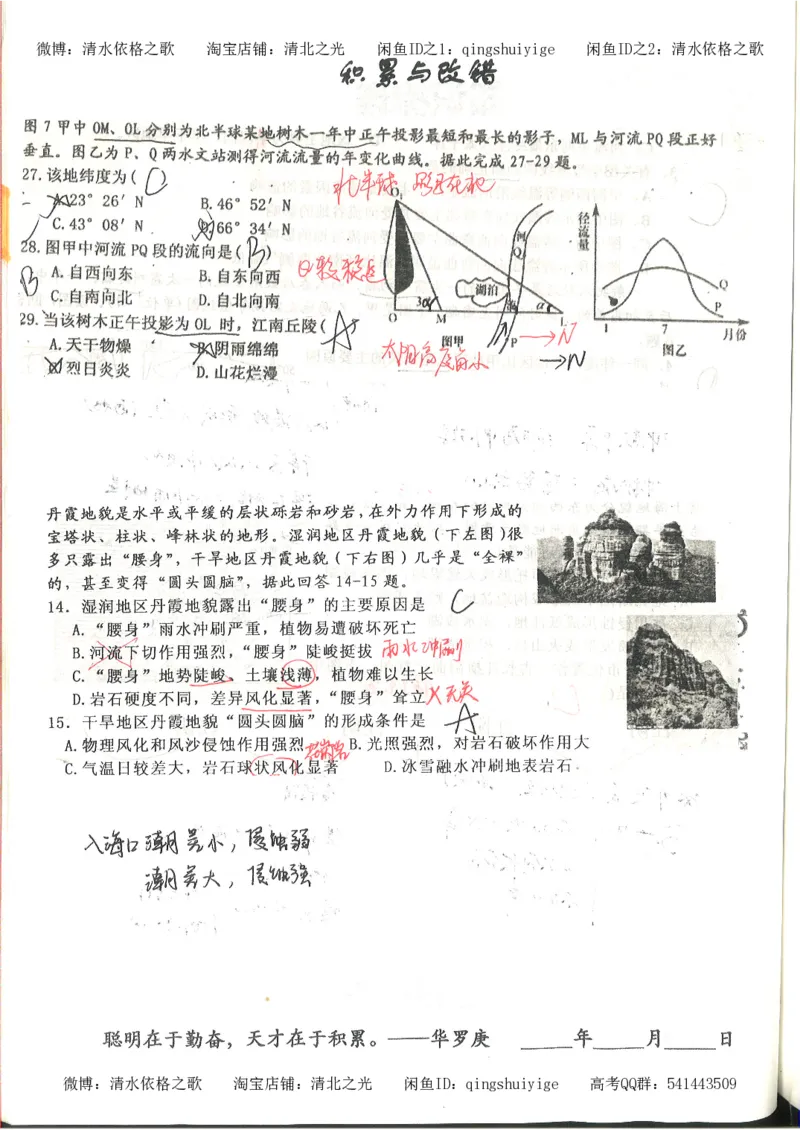 微博：清水依格之歌 淘宝店铺：清北之光 闲鱼ID之1：qingshuiyige 闲鱼ID之2：清水依格之歌
积累与改错
图 7 甲中 OM、OL 分别为北半球某地树木一年中正午投影最短和最长的影子，ML 与河流 PQ 段正好
垂直。图乙为 P、Q 两水文站测得河流流量的年变化曲线。据此完成 27-29 题。
27.该地纬度为( C
A.23°26′N B.46°52′N
C.43°08′N D.66°34′N
北半球 影子在北
28.图甲中河流 PQ 段的流向是( B )
B
A.自西向东 B.自东向西
C.自南向北 D.自北向南
29.当该树木正午投影为 OL 时，江南丘陵( A
A.天干物燥 B.阴雨绵绵
C.烈日炎炎 D.山花烂漫
O₁
河
Q
湖泊
3α α
O M P L
图甲
N
N
太阳高度角小
径流量
Q
P
1 7 月份
图乙
丹霞地貌是水平或平缓的层状砾岩和砂岩，在外力作用下形成的
宝塔状、柱状、峰林状的地形。湿润地区丹霞地貌（下左图）很
多只露出“腰身”，干旱地区丹霞地貌（下右图）几乎是“全裸”
的，甚至变得“圆头圆脑”，据此回答 14-15 题。
14．湿润地区丹霞地貌露出“腰身”的主要原因是 C
A．“腰身”雨水冲刷严重，植物易遭破坏死亡
B.河流下切作用强烈，“腰身”陡峻挺拔 雨水冲刷
C.“腰身”地势陡峻、土壤浅薄，植物难以生长
D.岩石硬度不同，差异风化显著，“腰身”耸立 X无关
15．干旱地区丹霞地貌“圆头圆脑”的形成条件是 A
A.物理风化和风沙侵蚀作用强烈 B.光照强烈，对岩石破坏作用大
C.气温日较差大，岩石球状风化显著 D.冰雪融水冲刷地表岩石
入海口潮差小，侵蚀弱
潮差大，侵蚀强
聪明在于勤奋，天才在于积累。——华罗庚 _____年_____月_____日
微博：清水依格之歌 淘宝店铺：清北之光 闲鱼ID：qingshuiyige 高考QQ群：541443509